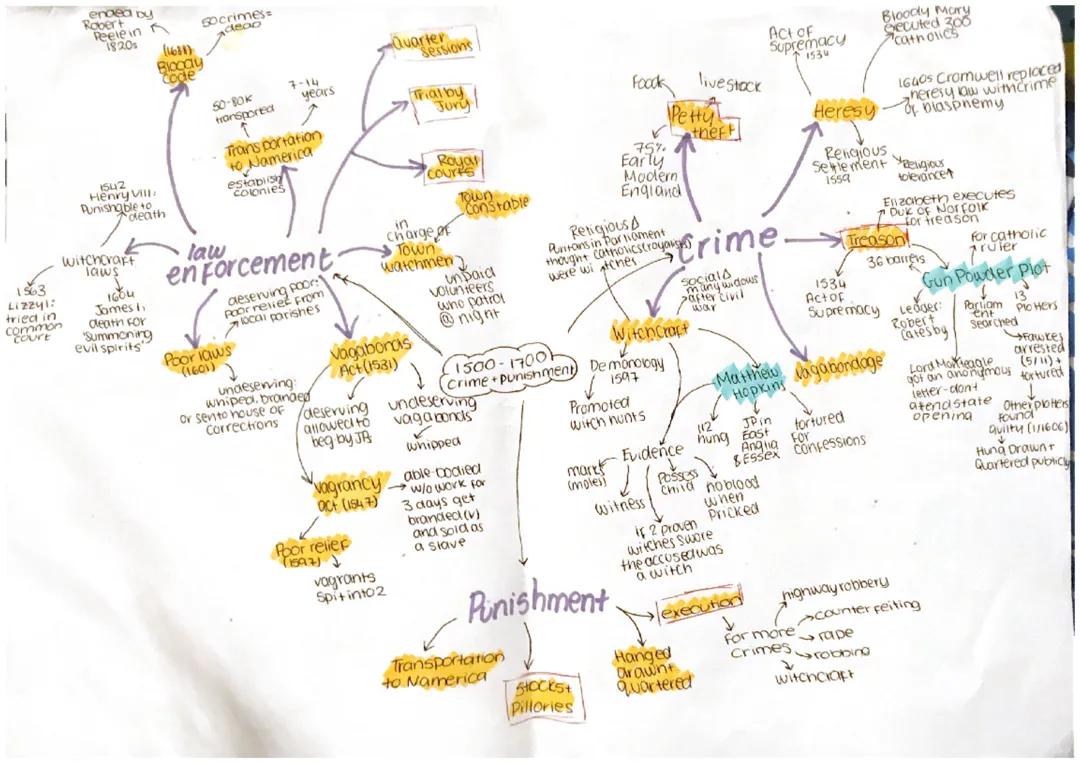 ended by
Robert
Peele in
1820s
50 crimes=
dead
(1688)
Bloody
Code
50-80k
transported
7-14
years
Transportation
to Namerica
establish
colonies
Quarter
Sessions
Trial by
Jury
Royal
courts
Town
Constable
in
charge of
Town
watchmen
unpaid
volunteers
who patrol
@ night
law
enforcement
1542
Henry VIII:
Punishable to
death
witchcraft
laws
1563
Lizzy I:
tried in
common
court
1604
James I:
death for
'summoning
evil spirits'
deserving poor:
poor relief from
local parishes
Poor laws
(1601)
undeserving:
whiped, branded
or sent to house of
corrections
Vagabonds
Act (1531)
deserving
allowed to
beg by JA
undeserving
vagabonds
whipped
vagrancy
act (1547)
able-bodied
w/o work for
3 days get
branded (v)
and sold as
a slave
Poor relief
(1597)
vagrants
split into 2
1500-1700
crime + punishment
Crime
Food
livestock
Petty
theft
75%
Early
Modern
England
Act of
Supremacy
1534
Bloody Mary
executed 300
catholics
Heresy
1640s Cromwell replaced
heresy law with crime
of blasphemy
Religious
Settlement
1559
Religious
tolerance↑
Elizabeth executes
Duk of Norfolk
for treason
Treason
1534
Act of
Supremacy
36 barrels
for catholic
ruler
Gun Powder Plot
Leader:
Robert
Catesby
Parliam
ent
searched
13
Plotters
Lord Monteagle
got an anonymous
letter-dont
atend state
opening
Fawkes
arrested
(5/11) +
tortured
Other plotters
found
guilty (1/1606)
Hung Drawn +
Quartered publicly
Religious Δ
Puritans in Parliament
thought catholics (royalists)
were witches
social Δ
many widows
after civil
war
Witchcraft
Demonology
1597
Promoted
witch hunts
Matthew
Hopkins
112
hung
JP in
East
Anglia
& Essex
tortured
for
confessions
Vagabondage
Evidence
marks
(moles)
Witness
Possess
child
no blood
when
pricked
if 2 proven
witches swore
the accused was
a witch
Punishment
Transportation
to Namerica
Stocks +
Pillories
Hanged
drawn +
quartered
execution
for more
crimes
highway robbery
counterfeiting
rape
robbing
witchcraft